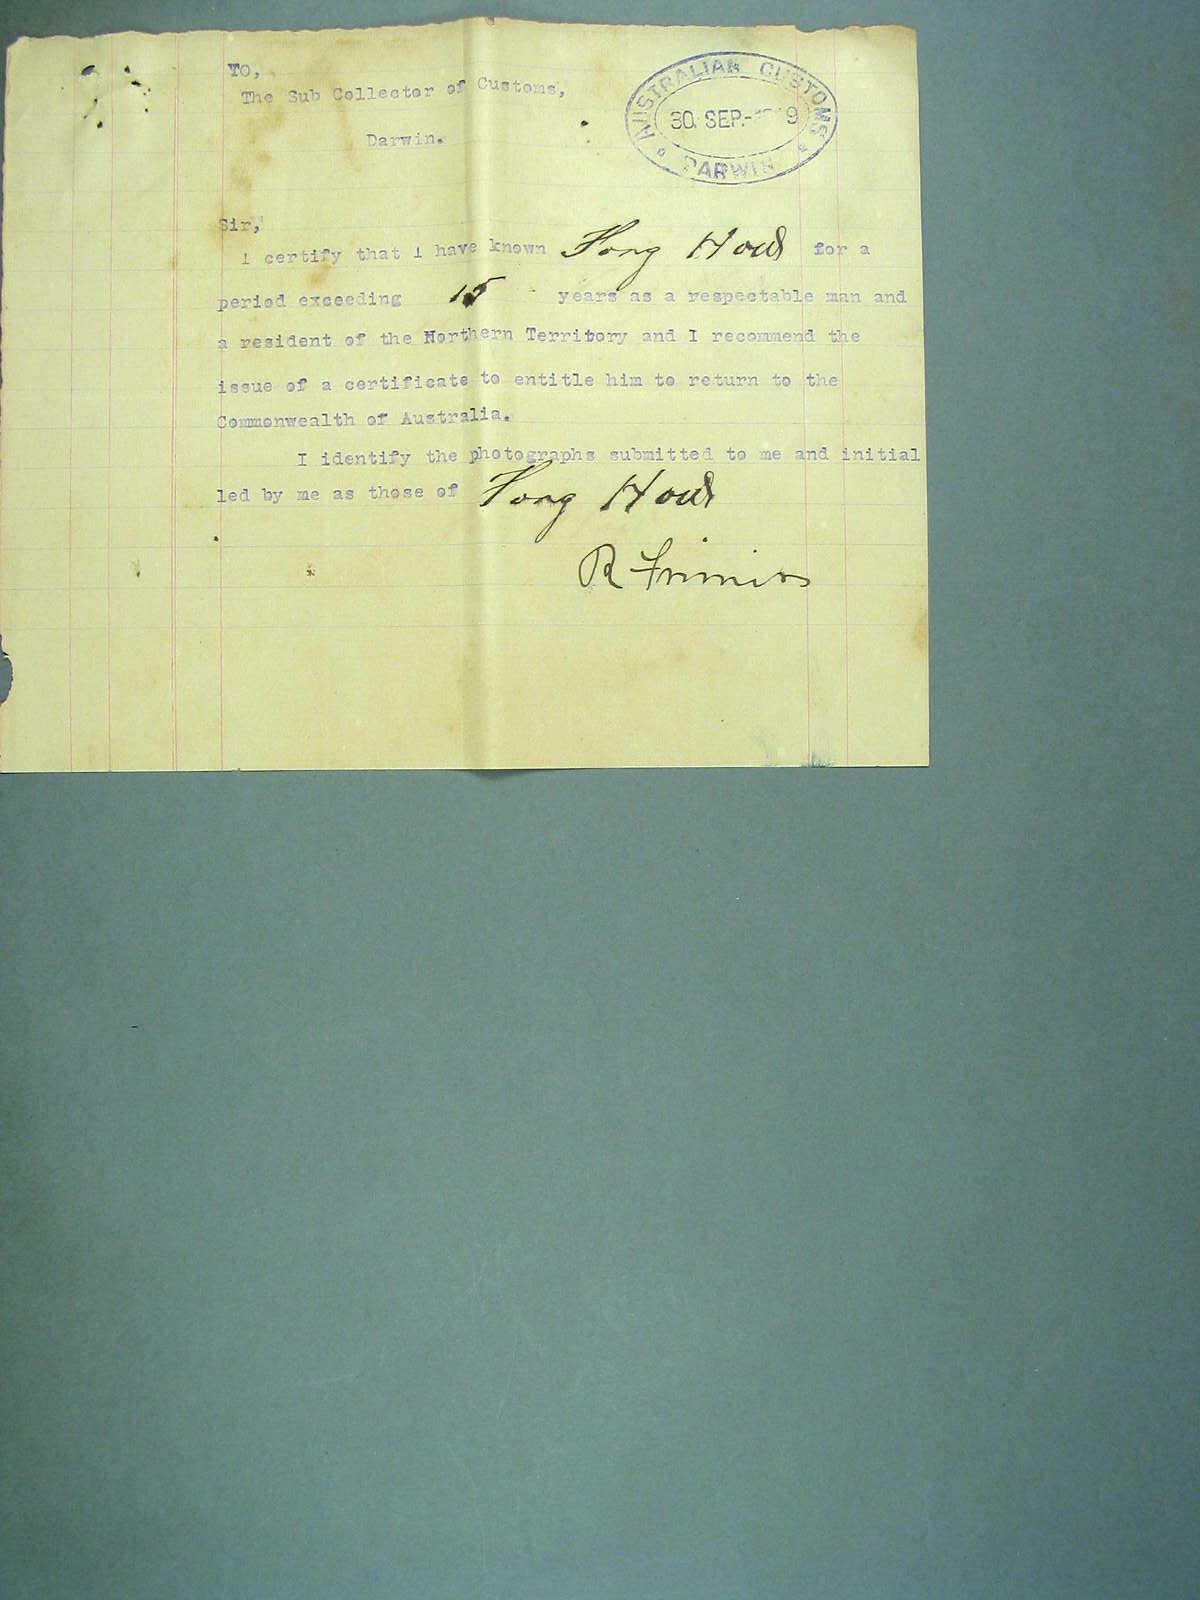 To,
The Sub Collector of Customs,
Darwin.
AUSTRALIAN CUSTOMS
30. SEP.
DARWIN
Sir,
I certify that I have known Fong How for a
period exceeding 15 years as a respectable man and
a resident of the Northern Territory and I recommend the
issue of a certificate to entitle him to return to the
Commonwealth of Australia.
I identify the photographs submitted to me and initial
led by me as those of Fong How
R